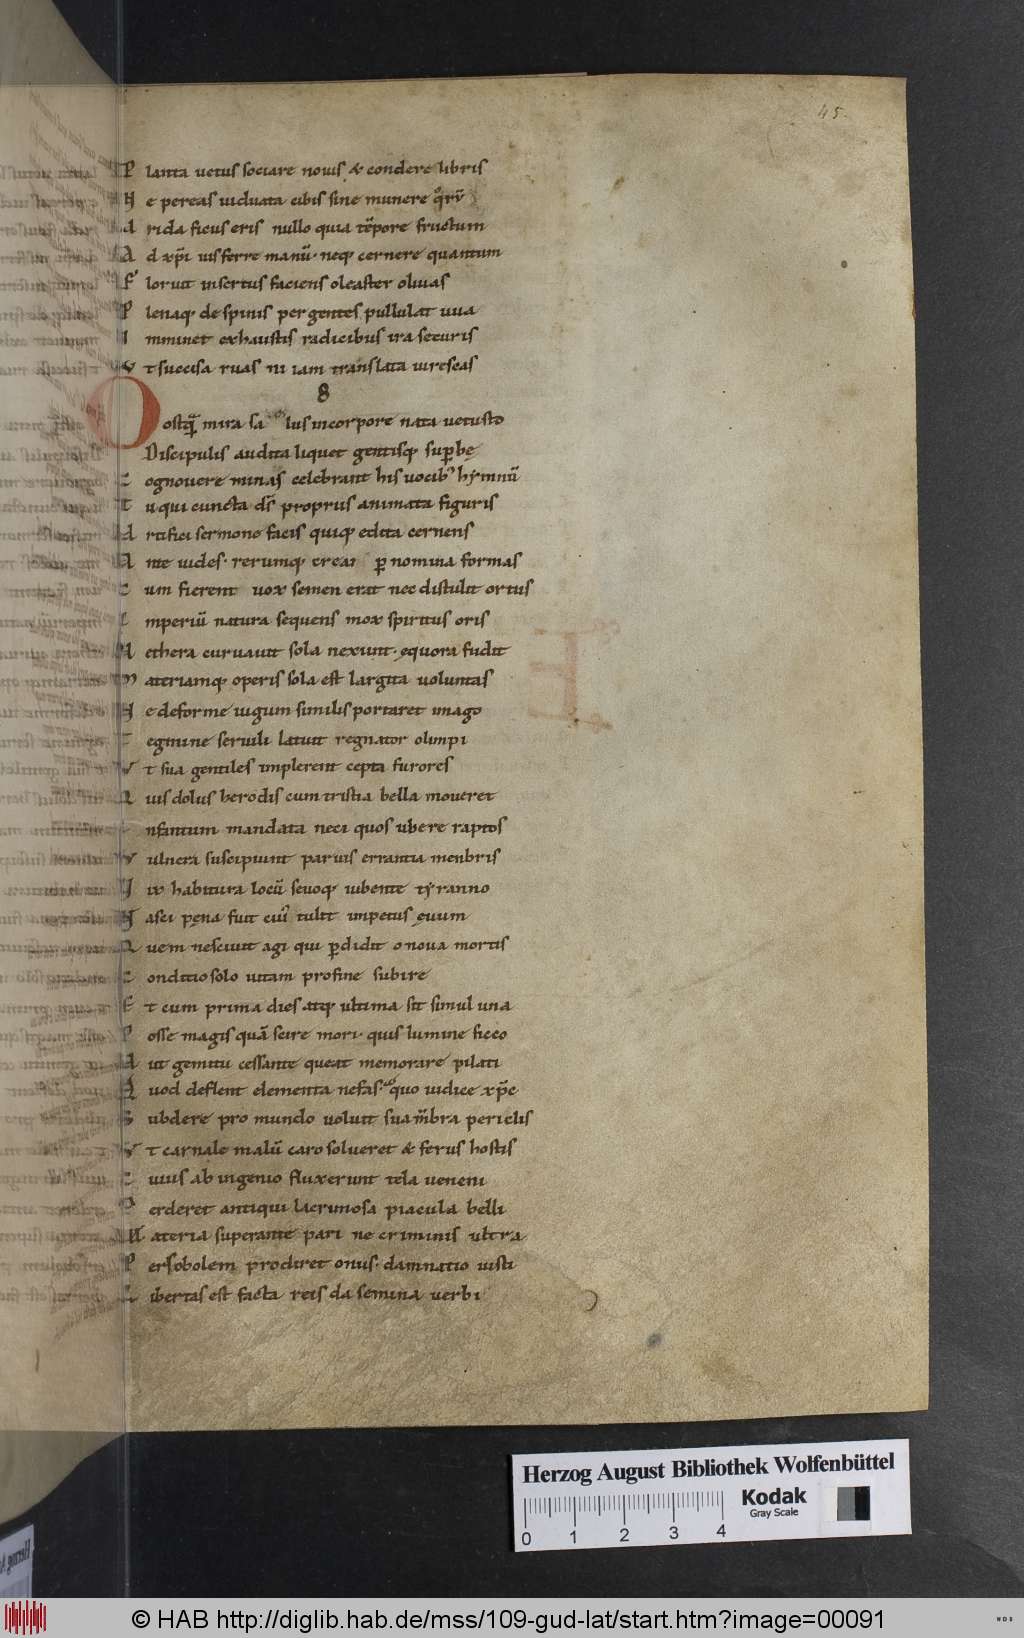 45.
P lanta uetus sociare nouis & condere libris
N e pereas uiduata cibis sine munere
A rida ficus eris nullo quia tēpore fructum
A d xp̄i uis ferre manū· neq; cernere quantum
F loruit insertus faciens oleaster oliuas
P lenaq; de spinis pergentes pullulat uua
I mminet exhaustis radicibus ira securis
V t succisa ruas ni iam translata uirescas
8
Postq̄ mira salus incorpore nata uetusto
Discipulis audita liquet gentisq; sup̄bę
C ognouere minas celebrant his uocib; hymnū
T u qui cuncta ds̄ propriis animata figuris
A rtifici sermone facis quiq; edita cernens
A nte uides· rerumq; creas p̄ nomina formas
C um fierent uox semen erat nec distulit ortus
I mperiū natura sequens mox spiritus oris
A ethera curuauit sola nexuit· ęquora fudit
M ateriamq; operis sola est largita uoluntas
N e deforme iugum similis portaret imago
T egmine seruili latuit regnator olimpi
V t sua gentiles implerent cepta furores
Q uis dolus herodis cum tristia bella moueret
I nfantum mandata neci quos ubere raptos
V ulnera suscipiunt paruis errantia menbris
V ix habitura locū seuoq; iubente tẏranno
N asci pęna fuit cui' tulit impetus ęuum
Q uem nesciuit agi qui p̄didit o noua mortis
C onditio solo uitam profine subire
E t cum prima dies atq; ultima sit simul una
P osse magis quā scire mori· quis lumine sicco
A ut gemitu cessante queat memorare pilati
Q uod deflent elementa nefas· quo iudice xp̄e
S ubdere pro mundo uoluit sua m̄bra periclis
V t carnale malū caro solueret & ferus hostis
C uius ab ingenio fluxerunt tela ueneni
P erderet antiqui lacrimosa piacula belli
M ateria superante pari ne criminis ultra
P er sobolem prodiret onus· damnatio iusti
L ibertas est facta reis da semina uerbi
Herzog August Bibliothek Wolfenbüttel
Kodak
Gray Scale
0 1 2 3 4
© HAB http://diglib.hab.de/mss/109-gud-lat/start.htm?image=00091